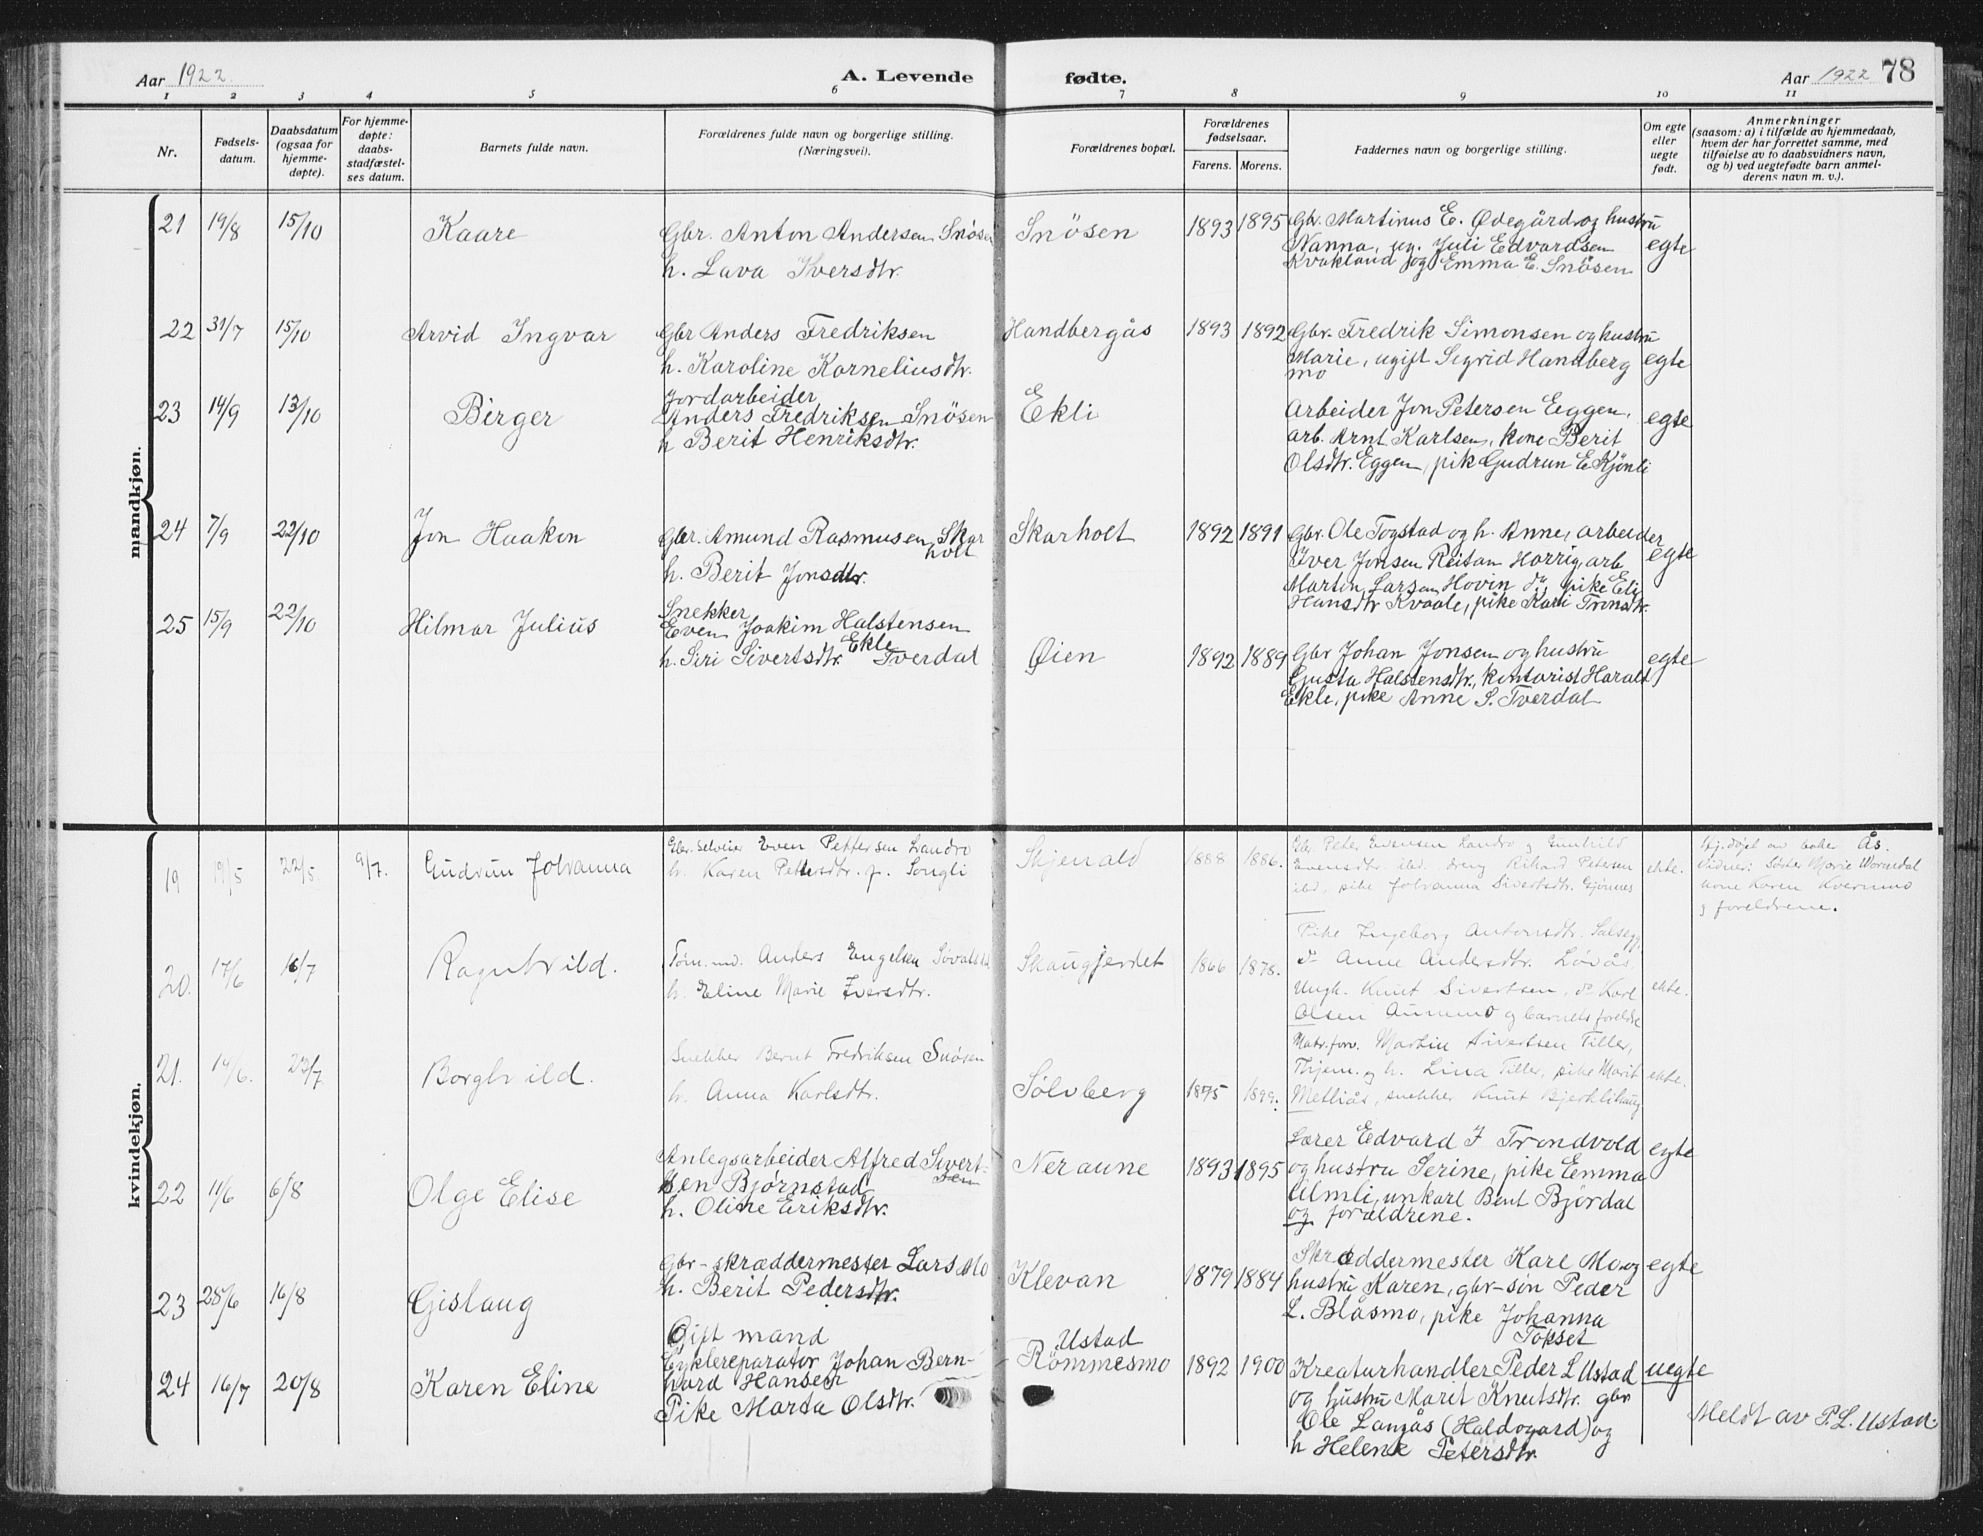 Aar 1922. A. Levende fødte. Aar 1922 78
1 2 3 4 5 6 7 8 9 10 11
Nr.
Fødsels-
datum.
Daabsdatum
(ogsaa for
hjemme-
døpte).
For hjemme-
døpte:
daabs-
stadfæstel-
ses datum.
Barnets fulde navn.
Forældrenes fulde navn og borgerlige stilling.
(Næringsvei).
Forældrenes bopæl.
Forældrenes
fødselsaar.
Farens. Morens.
Faddernes navn og borgerlige stilling.
Om egte
eller
uegte
født.
Anmerkninger
(saasom: a) i tilfælde av hjemmedaab,
hvem der har forrettet samme, med
tilføielse av to daabsvidners navn,
og b) ved uegtefødte barn anmel-
derens navn m. v.).
mandkjøn.
21 19/8 15/10 Kaare
Gbr. Anton Andersen Snösen
h. Lava Iversdtr.
Snösen 1893 1895
Gbr. Martinus E. Ødegård og hustru
Nanna, ug. Juli Edvardsen
Kvakland og Emma E. Snösen
egte
22 31/7 15/10 Arvid Ingvar
Gbr Anders Fredriksen
h. Karoline Korneliusdtr.
Handbergås 1893 1892
Gbr. Fredrik Simonsen og hustru
Marie, ugift Sigrid Handberg
mo
egte
23 14/9 13/10 Birger
Jordarbeider
Anders Fredriksen Snösen
h Berit Henriksdtr.
Ekli
Arbeider Jon Petersen Eggen,
arb. Arnt Karlsen, kone Berit
Olsdtr. Eggen, pik Gudrun E Kjönli
egte
24 7/9 22/10 Jon Haakon
Gbr. Amund Rasmusen Skar
holt
h. Berit Jonsdtr.
Skarholt 1892 1891
Gbr. Ole Togstad og h. Anne, arbeider
Iver Jonsen Reitan Horrig, arb
Martin Larsen Hovin do, pike Eli
Hansdtr Kvaale, pike Kari Tronsdtr.
egte
25 15/9 22/10 Hilmar Julius
Snekker
Even Joakim Halstensen
Ekle
h. Siri Sivertsdtr. Tverdal
Øien 1892 1889
Gbr Johan Jonsen og hustru
Gusta Halstensdtr., kontorist Harald
Ekle, pike Anne S. Tverdal
egte
kvindekjøn.
19 19/5 22/5. 9/7. Gudrun Johanna
Gbr. selveier Even Pettersen Landro
h. Karen Pettersdtr. f. Songli
Skjenald 1888 1886.
Gbr. Peter Evensen Landro og Gunhild
Evensdtr ibd. dreng Rikard Petersen
ibd, pike Johanna Sivertsdtr. Gjönnes
ekte.
Hj.døpt av Ås.
Vidner: Söster Marie Wormdal
kone Karen Kvernmo
og foreldrene.
20. 17/6 16/7 Ragnhild.
Töm.md. Anders Engelsen
h. Eline Marie Iversdtr.
Skaugjerdet 1866 1878.
Pike Ingeborg Antonsdtr. Salsegg,
do Anne Andersdtr. Løvås,
Ungk. Knut Sivertsen, do Karl
Olsen Aunmo og barnets foreldre
ekte.
21. 14/6. 23/7 Borghild.
Snekker Bernt Fredriksen Snösen
h. Anna Karlsdtr.
Sölvberg 1875 1899.
Matr.forv. Martin Sivertsen Tiller,
Thjem. og h. Lina Tiller, pike Marit
Metliås, snekker Knut Bjerklihaug
ekte.
22 11/6 6/8 Olge Elise
Anlegsarbeider Alfred Sivert-
sen Bjørnstad
h. Oline Eriksdtr.
Neraune 1893 1895
Lærer Edvard I Trondvold
og hustru Serine, pike Emma
Almli, unkarl Bent Björdal
og forældrene.
egte
23 28/6 16/8 Gislaug
Gbr-skræddermester Lars Mo
h. Berit Pedersdtr.
Klevan 1879 1884
Skræddermester Karl Mo og
hustru Karen, gbr-søn Peder
L. Blåsmo, pike Johanna
Tokset
egte
24 16/7 20/8 Karen Eline
Gift mand
Cyklereparatør Johan Bern-
hard Hansen
Pike Marta Olsdtr.
Ustad
Römmesmo 1892 1900
Kreaturhandler Peder L Ustad
og hustru Marit Knutsdtr. gbr
Ole Langås (Haldogard) og
h Helene Petersdtr.
uegte
Meldt av P.L. Ustad.